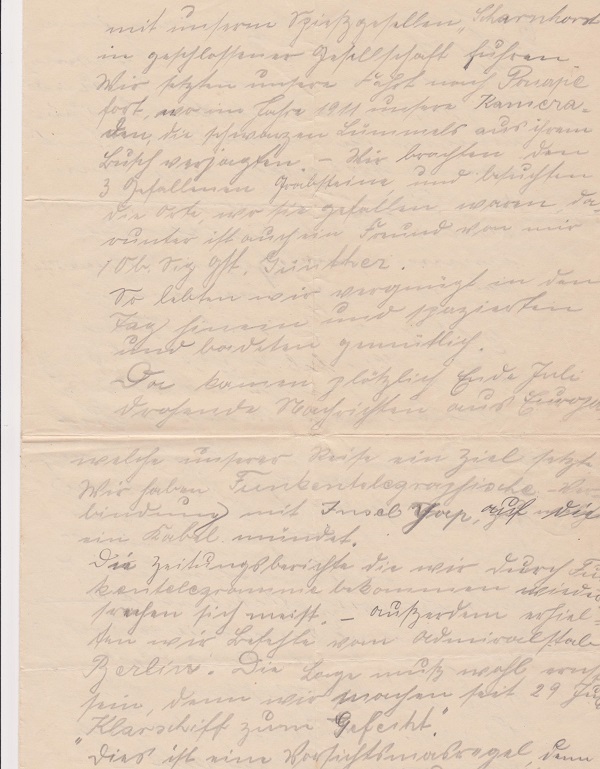 mit unserm Spießgesellen, Scharnhorst
in geschlossener Gesellschaft fuhren
Wir setzten unsere Fahrt nach Ponapé
fort, wo im Jahre 1911 unsere Kamera-
den, die schwarzen Lümmels aus ihrem
Busch verjagten. – Wir brachten den
3 Gefallenen Grabsteine, und besuchten
die Orte, wo sie gefallen waren, da-
runter ist auch ein Freund von mir
1 Ob. Sig. Gst. Günther.
So lebten wir vergnügt in den
Tag hinein und spazierten
und badeten gemütlich.
Da kamen plötzlich Ende Juli
drohende Nachrichten aus Europa
welche unserer Reise ein Ziel setzte
Wir haben Funkentelegraphische Ver-
bindung mit Insel Yap, auf die
ein Kabel mündet.
Die Zeitungsberichte die wir durch Fun
kentelegramme bekommen wieder
sprechen sich meist. – außerdem erhiel-
ten wir Befehle vom Admiralstab
Berlin. Die Lage muß wohl ernst
sein, denn wir machen seit 29 Juli
"Klarschiff zum Gefecht".
Dies ist eine Vorsichtsmasregel, denn